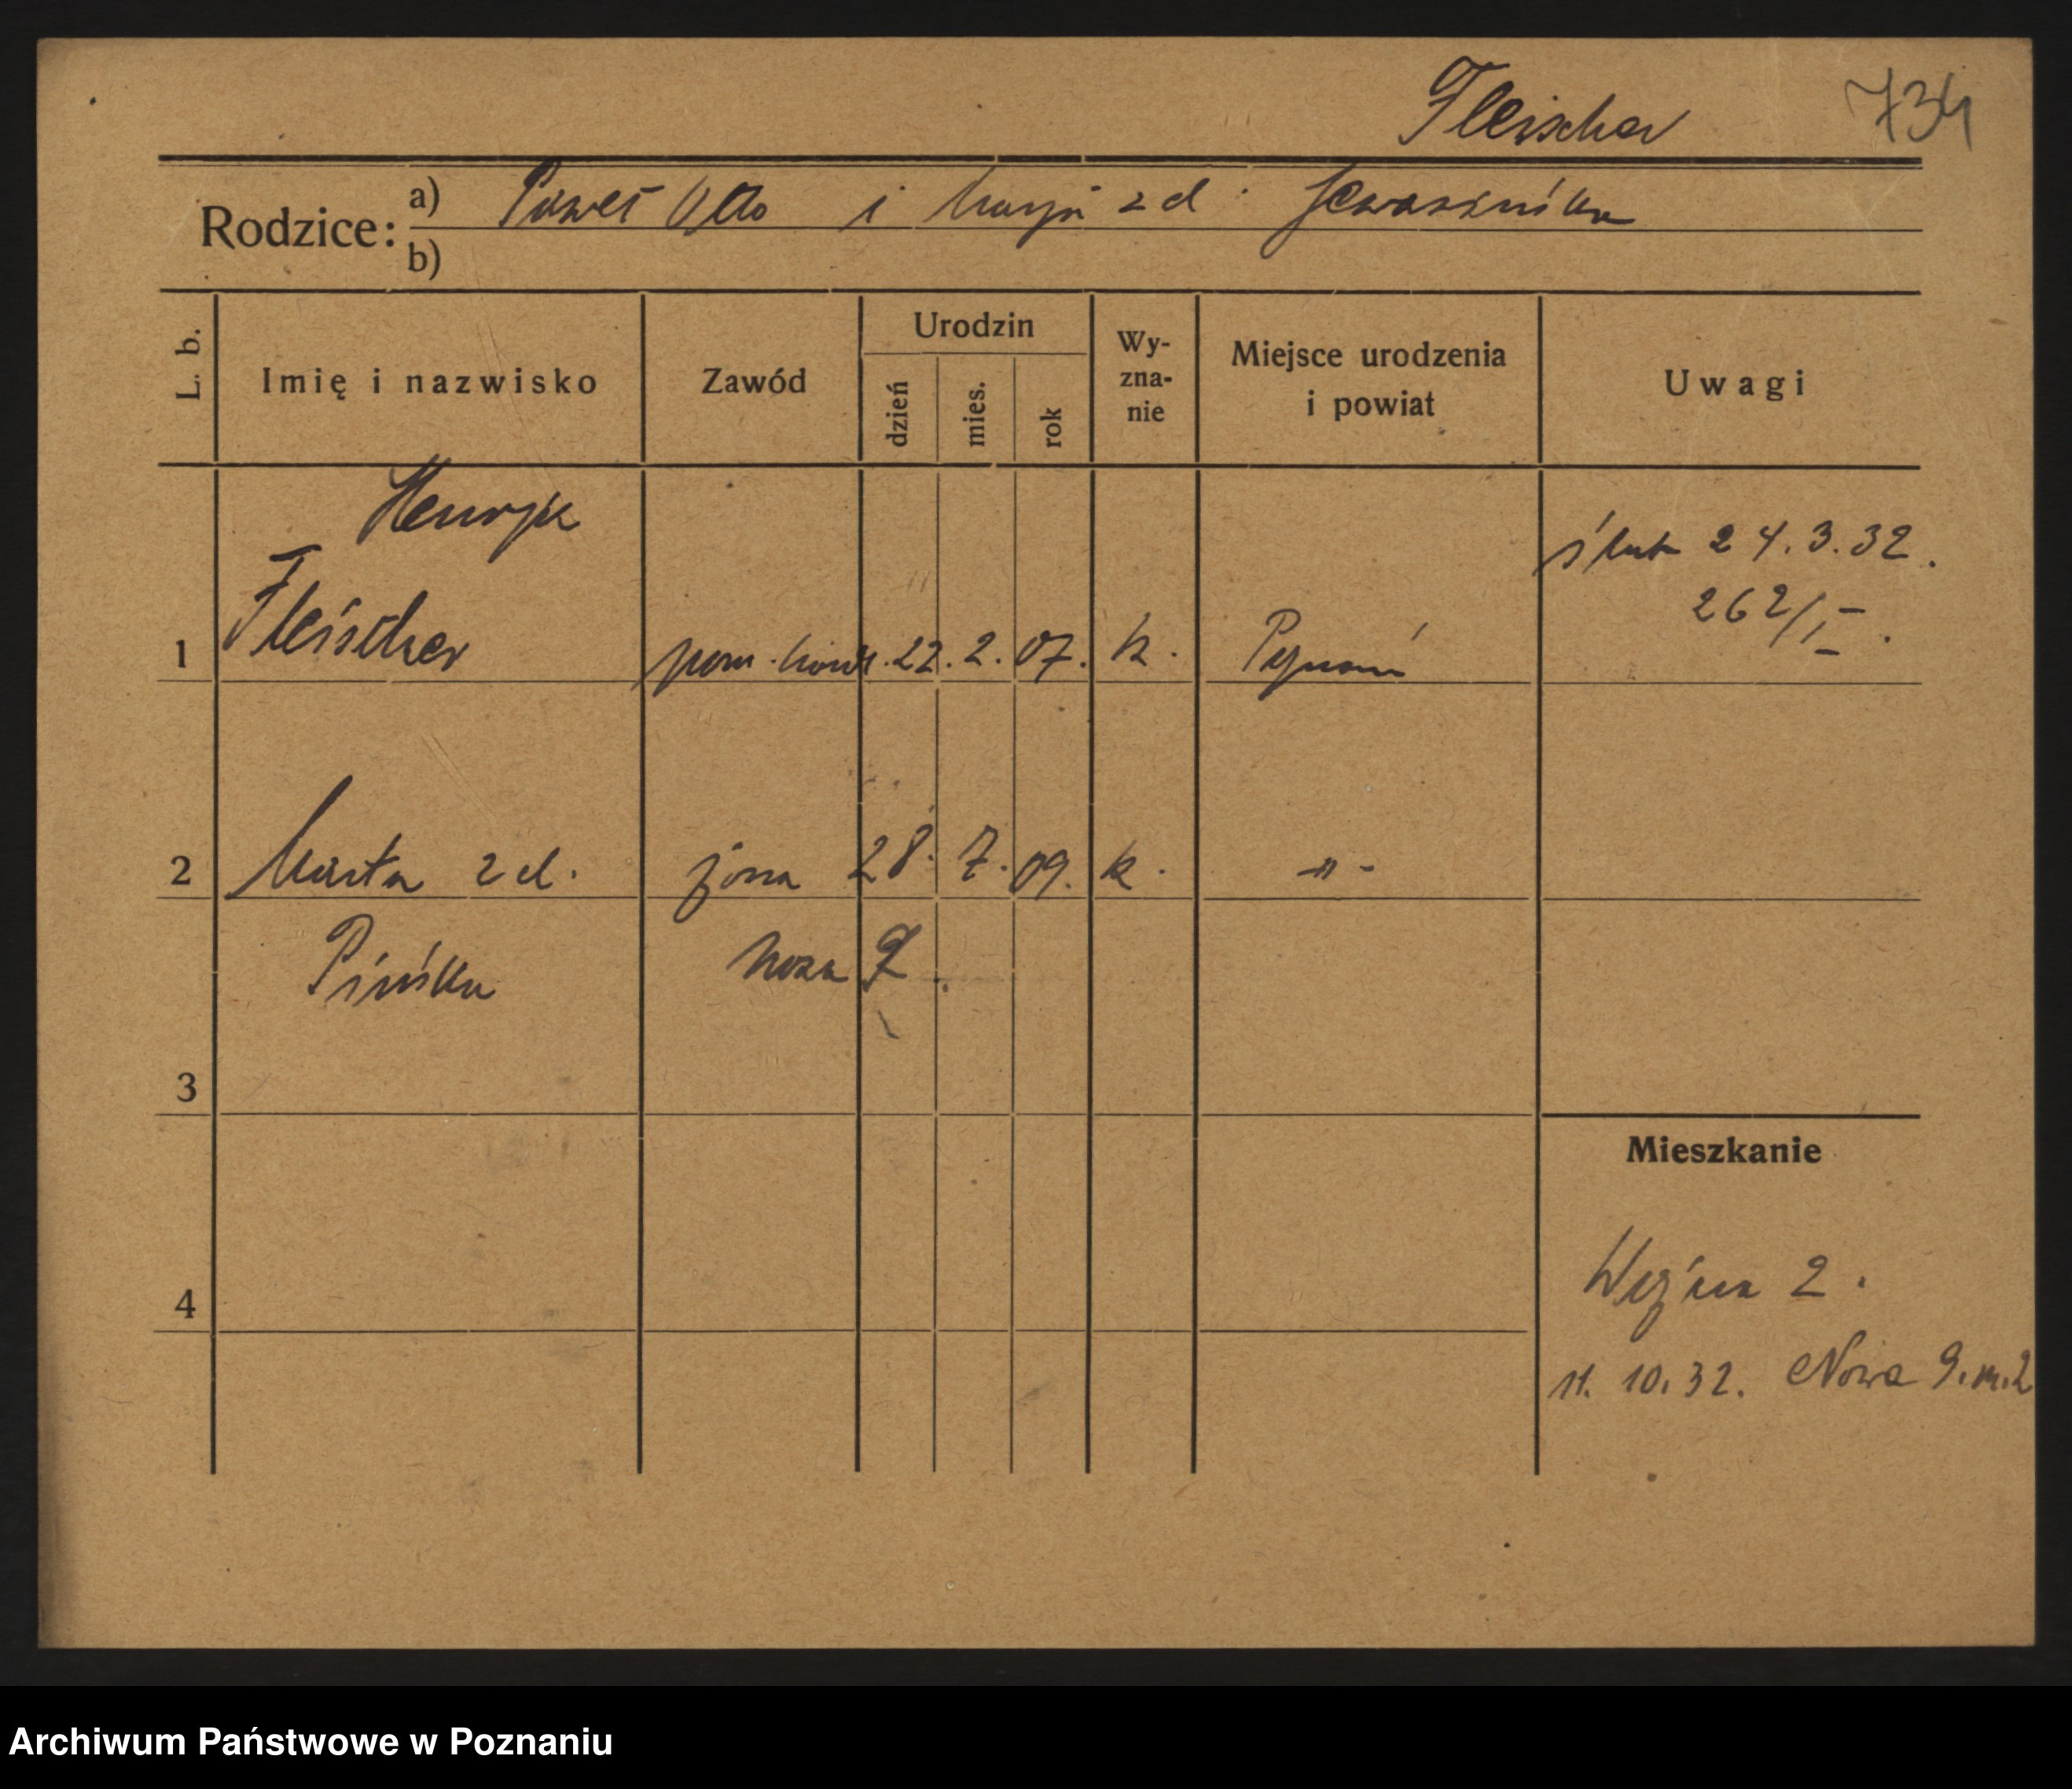 Fleischer 734
Rodzice: a) Paweł Otto i Marja z d.
b)
L. b. Imię i nazwisko Zawód Urodzin dzień mies. rok Wy-zna-nie Miejsce urodzenia i powiat Uwagi
Henryk
ślub 24.3.32.
262/I.
1 Fleischer pom. 22. 2. 07. k. Poznań
2 Marta z d. żona 28. 7. 09. k. -"-
Pińska
3
Mieszkanie
4 2.
11. 10. 32. Nowa 9. m. 2
Archiwum Państwowe w Poznaniu